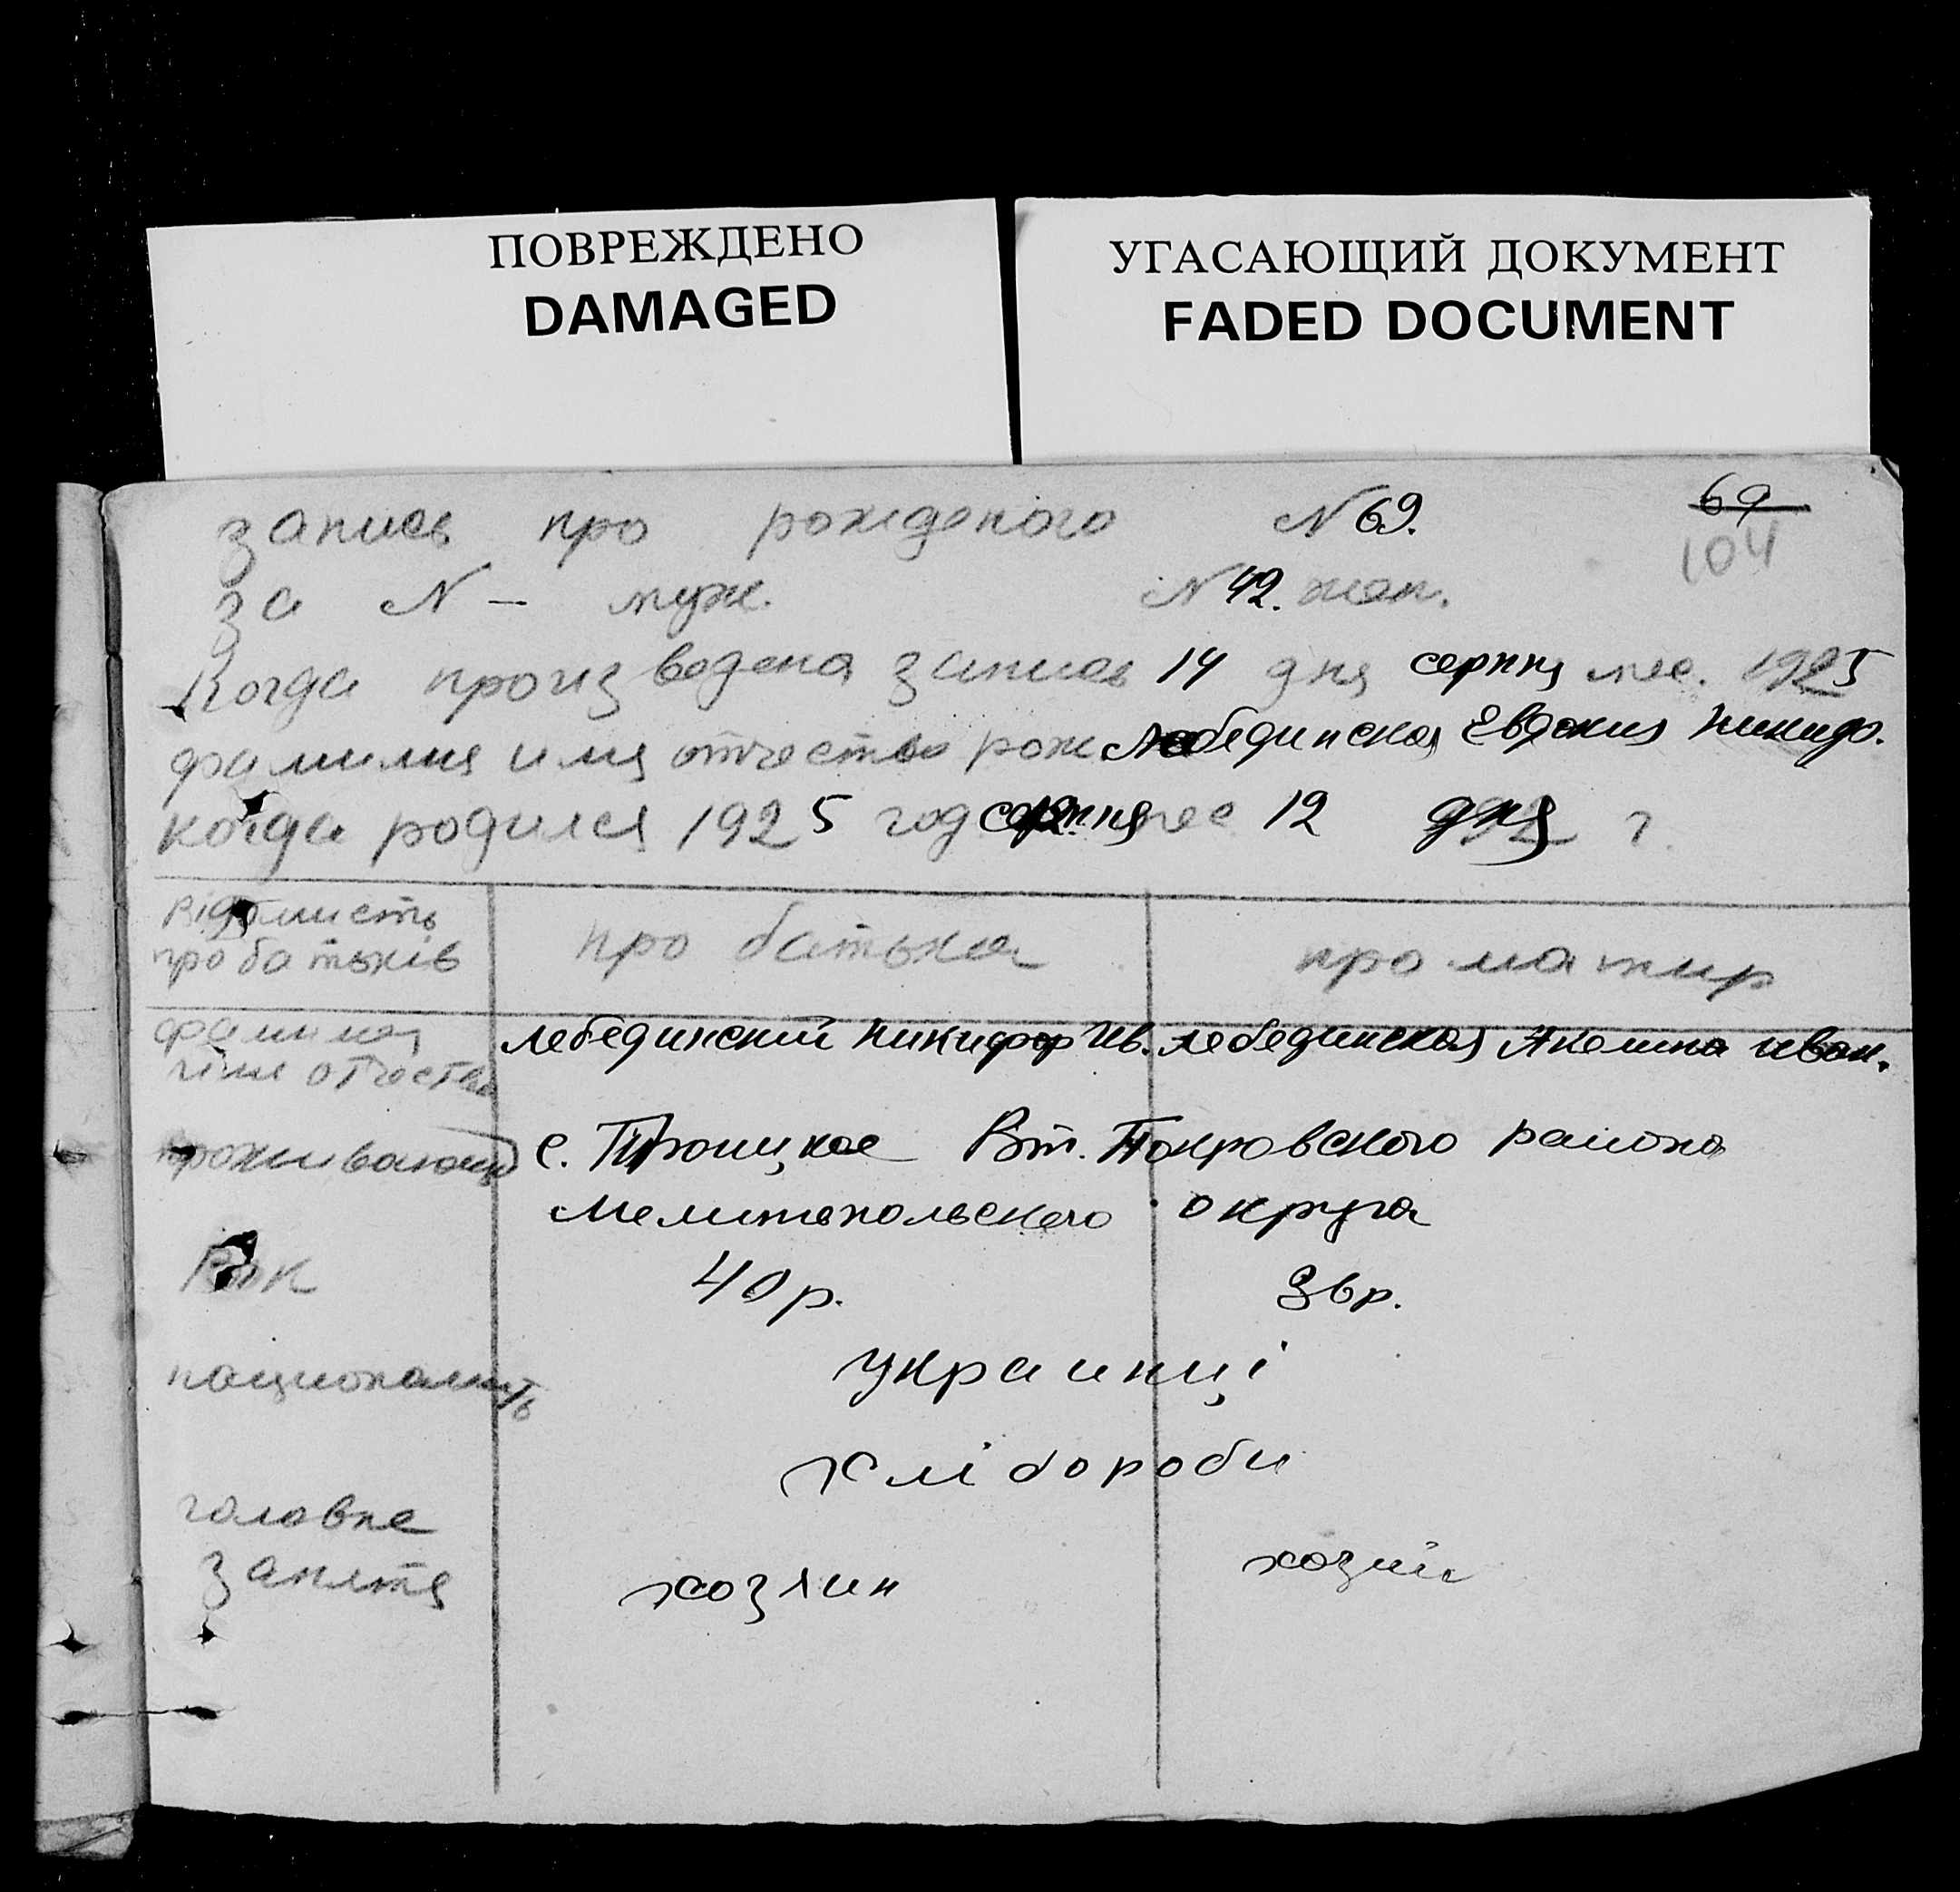 ПОВРЕЖДЕНО
DAMAGED
УГАСАЮЩИЙ ДОКУМЕНТ
FADED DOCUMENT
69
104
запись про рожденого N 69.
за N – муж. N 42. жен.
Когда произведена запись 14 дня серпня мес. 1925
фамилия имя отчество рож Лебединская Евдокия Никиф.
когда родился 1925 год серпня мес 12 дня г.
Відомисть про батька про матир
про батьків
фамилия Лебединский Никифор Ив. Лебединская Акелина Иван.
имя отчество
проживающ с. Троицкое Вт. Покровского района
Мелитопольского округа
Рок 40 р. 36 р.
националить украинці
хлібороби
головне
занятя хозяин